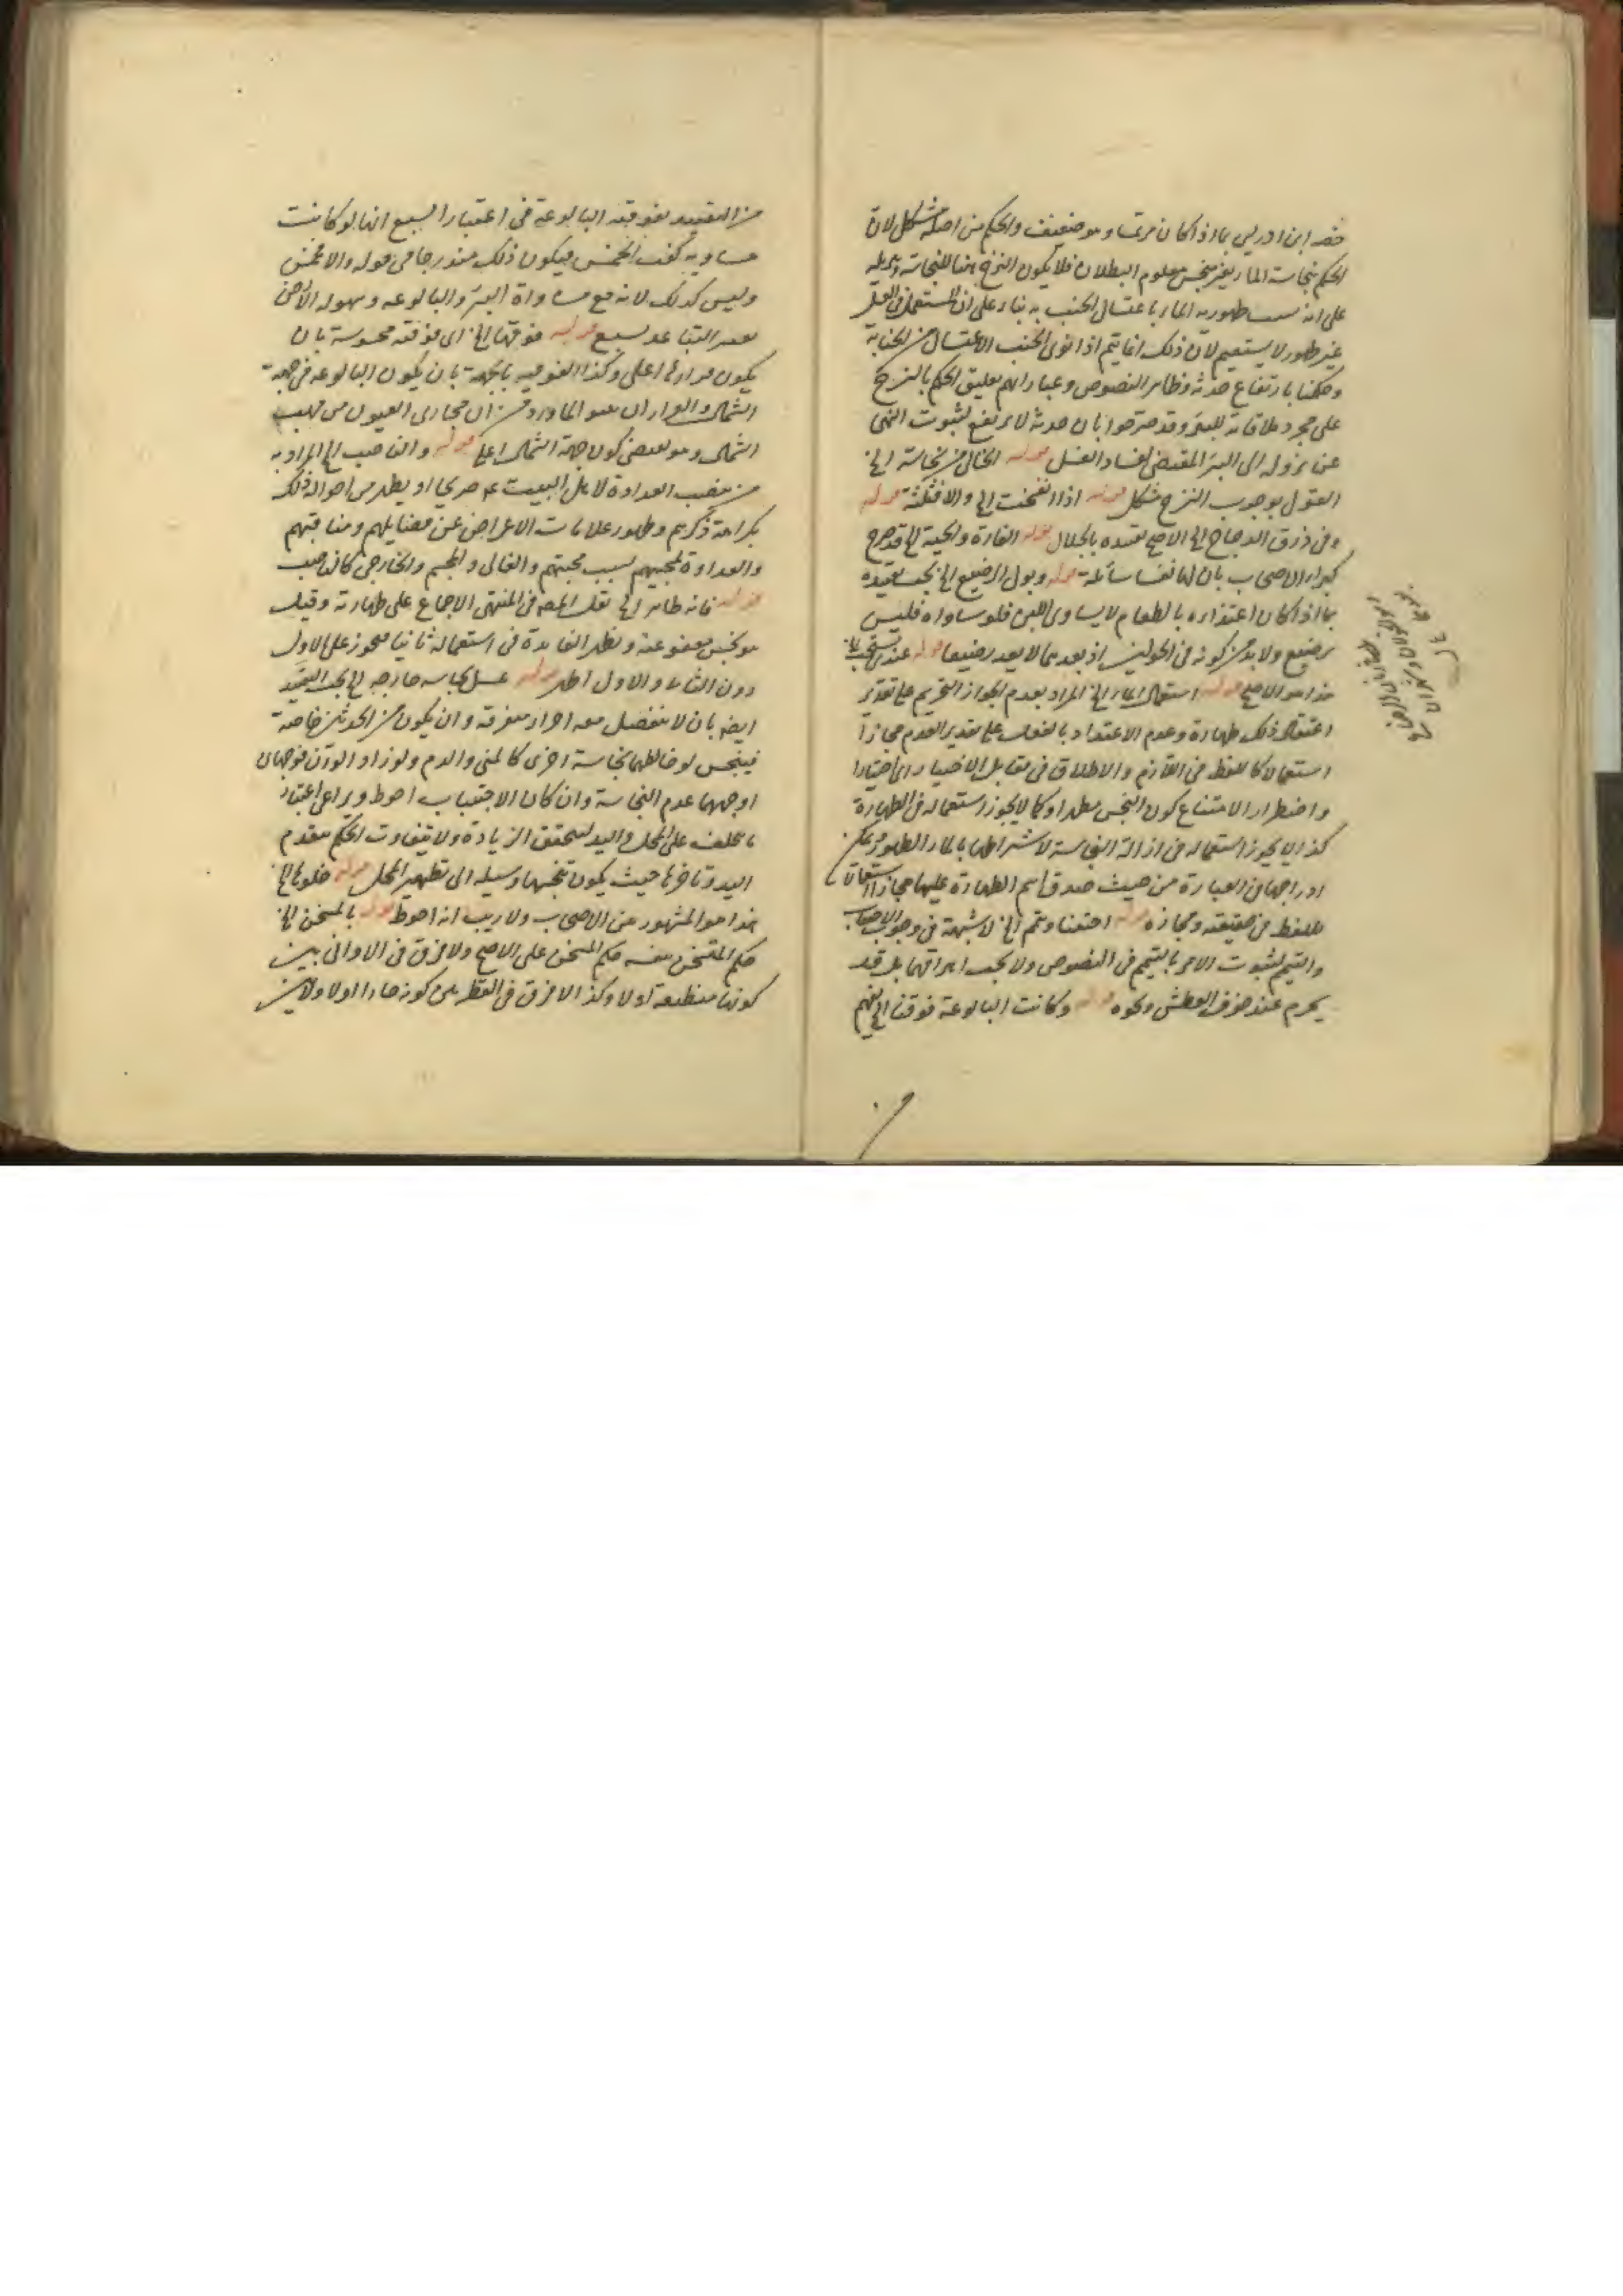 خصه ابن ادريس بما اذا كان مرتمسا وهو ضعيف والحكم من اصله مشكل لان
الحكم بنجاسة الماء بغير منجس معلوم البطلان فلا يكون النزح هنا للنجاسة وتنزيله
على انه طهورية الماء باغتسال الجنب به بناء على ان المستعمل في الغسل
غير طهور لا يستقيم لان ذلك انما يتم اذا نوى الجنب الاغتسال من الجنابة
وحكمنا بارتفاع حدثه وظاهر النصوص وعباراتهم تعليق الحكم بالنزح
على مجرد ملاقاته للبئر وقد صرحوا بان حدثه لا يرتفع لثبوت النهي
عن نزوله الى البئر المقتضي لفساد الغسل قوله الخالي من نجاسة الخ
القول بوجوب النزح مشكل قوله اذا انفخت الخ والا فثلثة قوله
وفي ذرق الدجاج الخ الاصح تقييده بالجلال قوله الفارة والحية الخ قد صرح
كبراء الاصحاب بان لها نفسا سائلة قوله وبول الرضيع الخ يجب تقييده
بما اذا كان اغتذاؤه بالطعام لا يساوي اللبن فلو ساواه فليس
برضيع ولا بد من كونه في الحولين اذ بعدهما لا يعد رضيعا قوله عندي
هذا هو الاصح قوله استعمال الماء الخ المراد بعدم الجواز التحريم على تقدير
اعتقاد ذلك طهارة وعدم الاعتداد بالفعل على تقدير العدم مجازا
استعمالا للفظ في اللازم والاطلاق في مقابل الاختيار اي اختيارا
واضطرارا لامتناع كون النجس مطهرا وكما لا يجوز استعماله في الطهارة
كذا لا يجوز استعماله في ازالة النجاسة لاشتراطها بالماء الطهور ويمكن
ادراجها في العبارة من حيث صدق اسم الطهارة عليها مجازا استعمالا
للفظ في حقيقته ومجازه قوله اجتنبا وتيمم الخ لا شبهة في وجوب الاجتناب
والتيمم لثبوت الامر بالتيمم في النصوص ولا يجب اهراقهما بل قد
يحرم عند خوف العطش ونحوه قوله وكانت البالوعة فوقها الخ يفهم
من التقييد بفوقية البالوعة في اعتبار السبع انها لو كانت
مساوية كفت الخمس فيكون ذلك مندرجا في قوله والا فخمس
وليس كذلك لانه مع مساواة البئر والبالوعة وسهولة الارض
التباعد بسبع قوله فوقها الخ اي فوقية محسوسة بان
يكون قرارها اعلى وكذا الفوقية بالجهة بان يكون البالوعة في جهة
الشمال ان مجاري العيون من مهب
الشمال وهو يقتضي كون جهة الشمال اعلى قوله والناصب الخ المراد به
من نصب العداوة لاهل البيت ع صريحا او يظهر من احواله ذلك
بكراهة ذكرهم وظهور علامات الاعراض عن فضايلهم ومناقبهم
والعداوة لمحبيهم بسبب محبتهم والغالي والمجسم والخارجي كالناصب
قوله فانه طاهر الخ نقل المص في المنتهى الاجماع على طهارته وقيل
هو نجس معفو عنه وتظهر الفايدة في استعماله ثانيا فيجوز على الاول
دون الثاني والاول اظهر قوله عسل نجاسة خارجه الخ يجب التقييد
ايضه بان لا ينفصل معه اجزاء متفرقة وان يكون من الحدثين خاصة
فينجس لو خالطهما نجاسة اخرى كالمني والدم ولو زاد الوزن فوجهان
اوجههما عدم النجاسة وان كان الاجتناب احوط ويراعى اعتبار
ما يتخلف على المحل واليد لتحقق الزيادة ولا يتفاوت الحكم بتقدم
اليد وتاخرها حيث يكون تنجسها وسيلة الى تطهير المحل قوله خلوها الخ
هذا هو المشهور من الاصحاب ولا ريب انه احوط قوله بالمسخن الخ
حكم المتسخن بنفسه حكم المسخن على الاصح ولا فرق في الاواني بين
كونها منطبعة اولا وكذا لا فرق في القطر بين كونه حارا اولا ولا بين